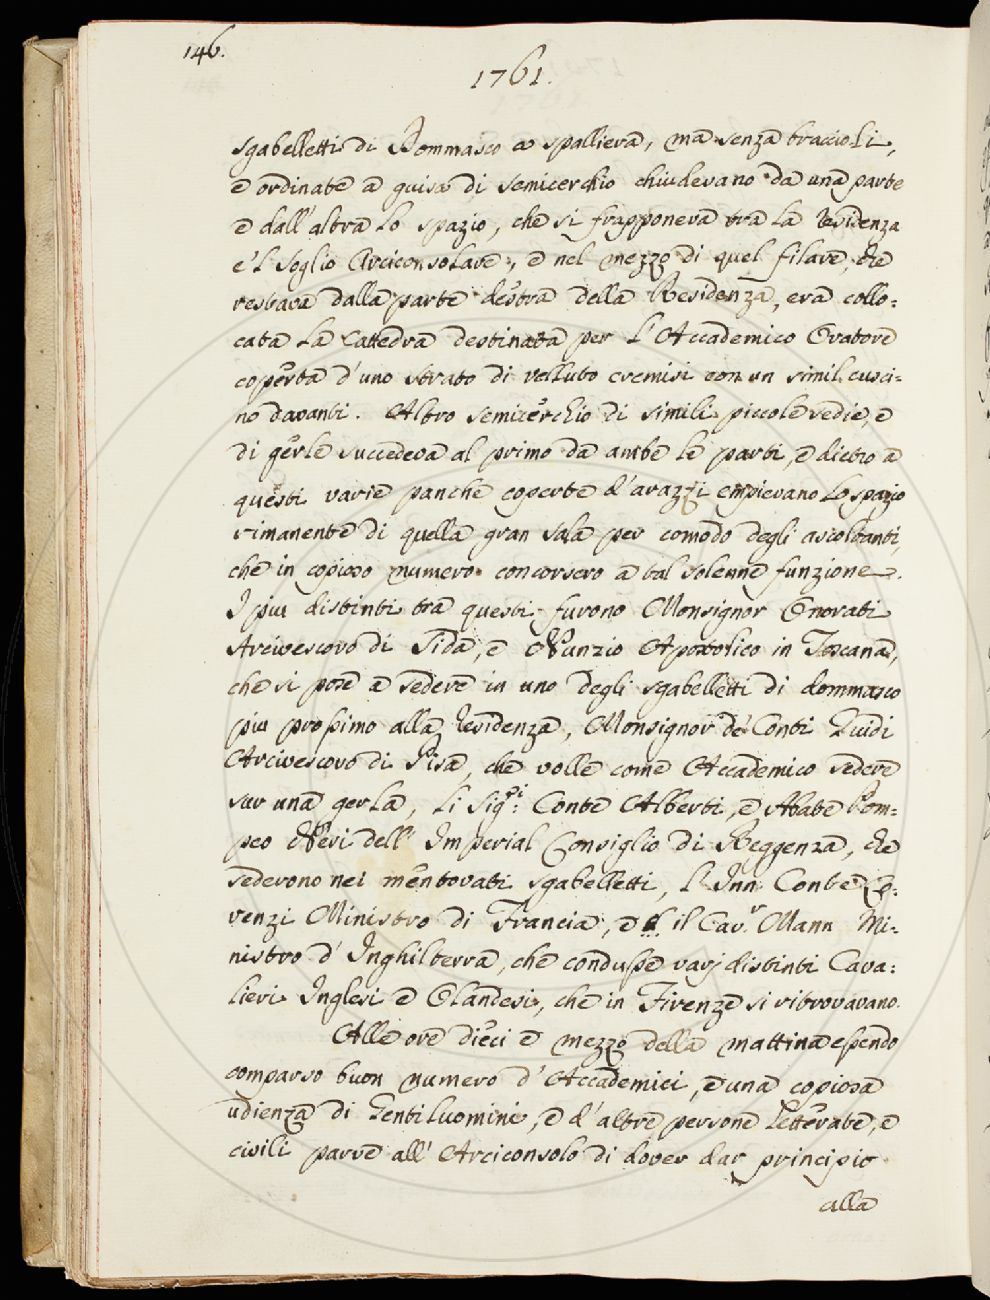 146.
1761.
sgabelletti di Dommasco a spalliera, ma senza braccioli,
e ordinate a guisa di semicerchio chiudevano da una parte
e dall'altra lo spazio, che si frapponeva tra la residenza
e'l soglio Arciconsolare, e nel mezzo di quel filare, che
restava dalla parte destra della Residenza, era collo-
cata la Cattedra destinata per l'Accademico Oratore
coperta d'uno strato di velluto cremisi con un simil cusci-
no davanti. Altro semicerchio di simili piccole sedie, e
di gerle succedeva al primo da ambe le parti, e dietro a
questi varie panche coperte d'arazzi empievano lo spazio
rimanente di quella gran sala per comodo degli ascoltanti,
che in copioso numero concorsero a tal solenne funzione.
I piu distinti tra questi furono Monsignor Onorati
Arcivescovo di Sida, e Nunzio Apostolico in Toscana,
che si pose a sedere in uno degli sgabelletti di dommasco
piu prossimo alla residenza, Monsignor de' Conti Guidi
Arcivescovo di Pisa, che volle come Accademico sedere
sur una gerla, li Sig.ri Conte Alberti, e Abate Pom-
peo Neri dell' Imperial Consiglio di Reggenza, che
sederono nei mentovati sgabelletti, l'Inn. Conte Lo-
renzi Ministro di Francia, e il Cav.r Mann Mi-
nistro d'Inghilterra, che condusse varj distinti Cava-
lieri Inglesi e Olandesi, che in Firenze si ritrovavano.
Alle ore dieci e mezzo della mattina essendo
comparso buon numero d'Accademici, e una copiosa
udienza di Gentiluomini, e d'altre persone letterate, e
civili parve all' Arciconsolo di dover dar principio
alla